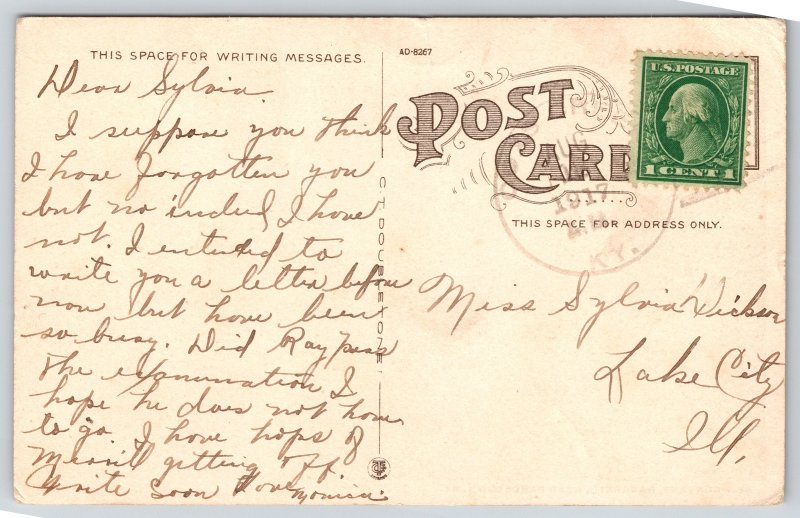 THIS SPACE FOR WRITING MESSAGES.
Dear Sylvia.
I suppose you think
I have forgotten you
but no indeed I have
not. I intended to
write you a letter before
now but have been
so busy. Did Ray pass
the examination I
hope he does not have
to go. I have hops of
Merrill getting off
Write soon Love
C.T. DOUBLETONE
AD-8267
POST
CARD
AUG
1917
KY.
U.S. POSTAGE
1 CENT 1
THIS SPACE FOR ADDRESS ONLY.
Miss Sylvia
Lake City
Ill,